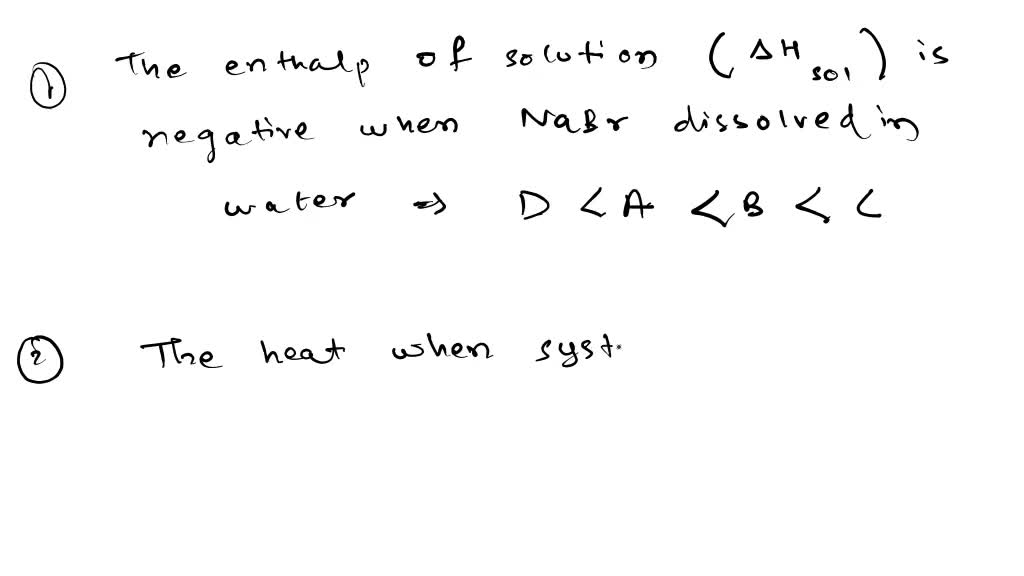 ① The enthalp of solution (ΔH sol) is
negative when NaBr dissolved in
water ⇒ D < A < B < C
② The heat when syst